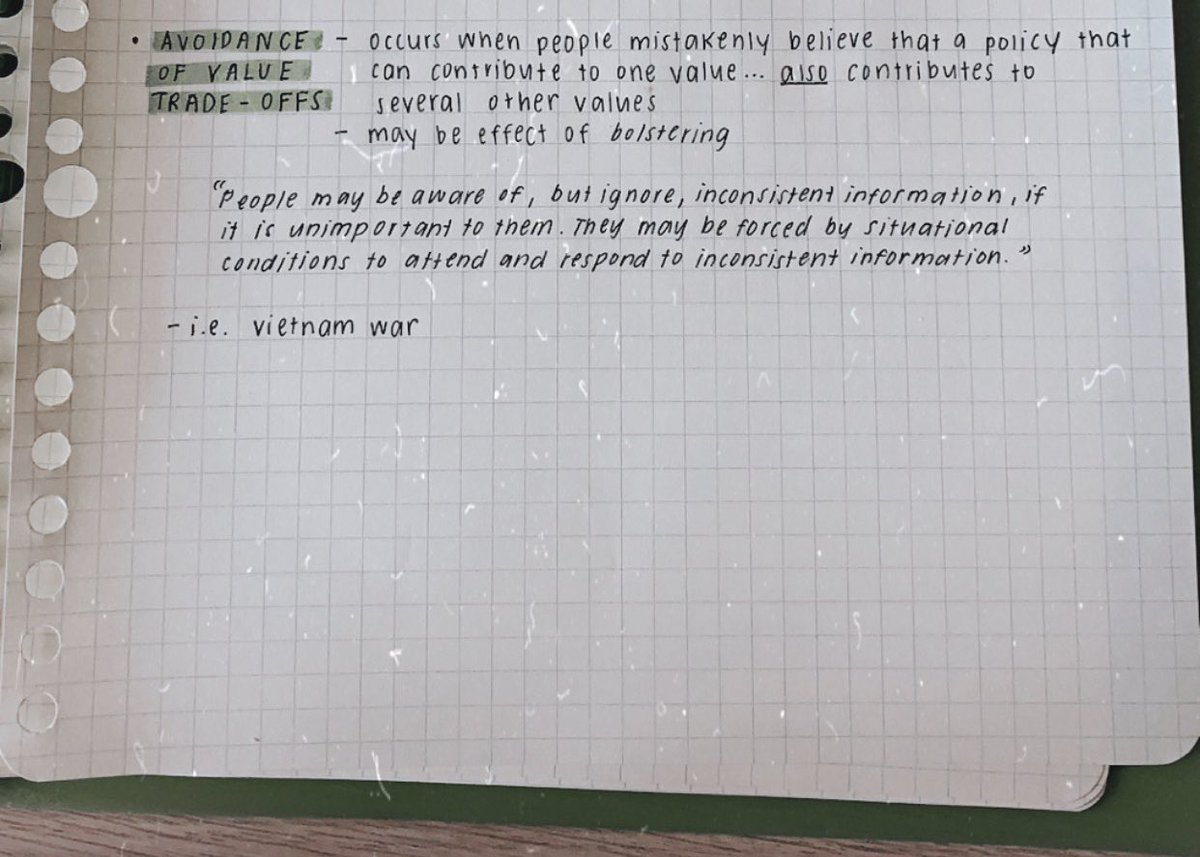 • AVOIDANCE - occurs when people mistakenly believe that a policy that
OF VALUE can contribute to one value... also contributes to
TRADE-OFFS several other values
- may be effect of bolstering
"People may be aware of, but ignore, inconsistent information, if
it is unimportant to them. They may be forced by situational
conditions to attend and respond to inconsistent information."
- i.e. vietnam war